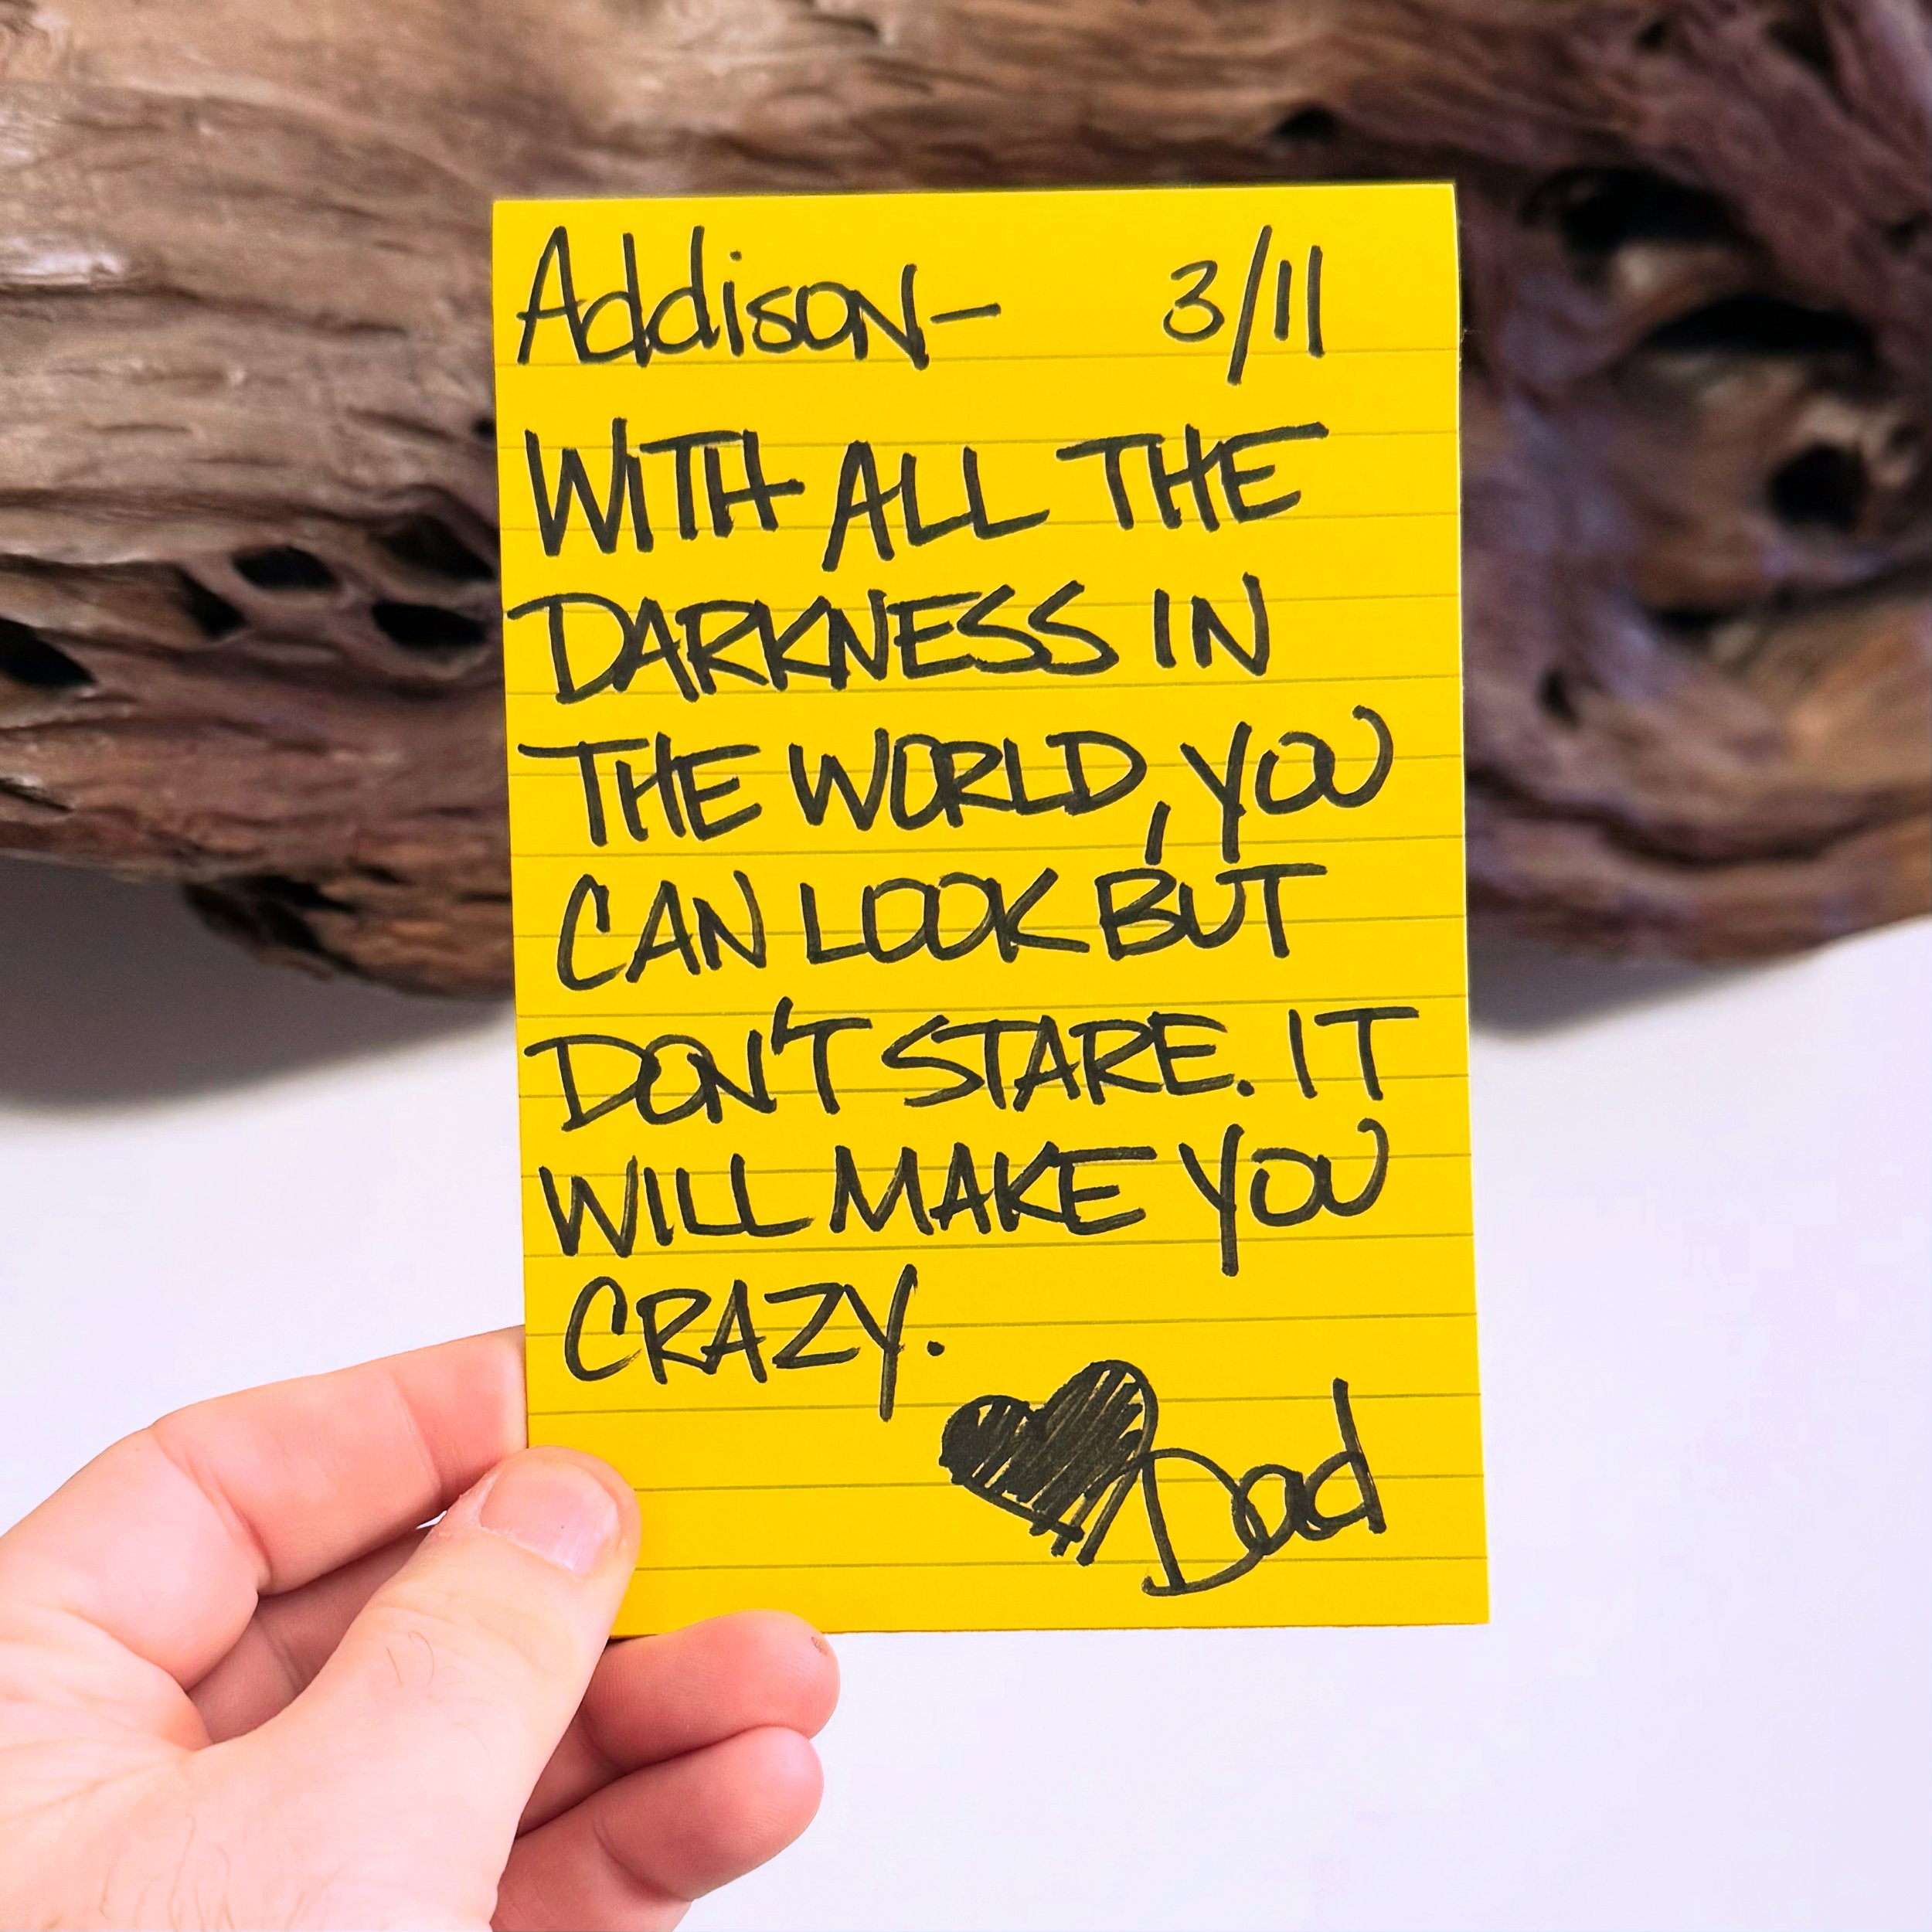 Addison- 3/11
WITH ALL THE
DARKNESS IN
THE WORLD, YOU
CAN LOOK BUT
DON'T STARE. IT
WILL MAKE YOU
CRAZY.
Dad